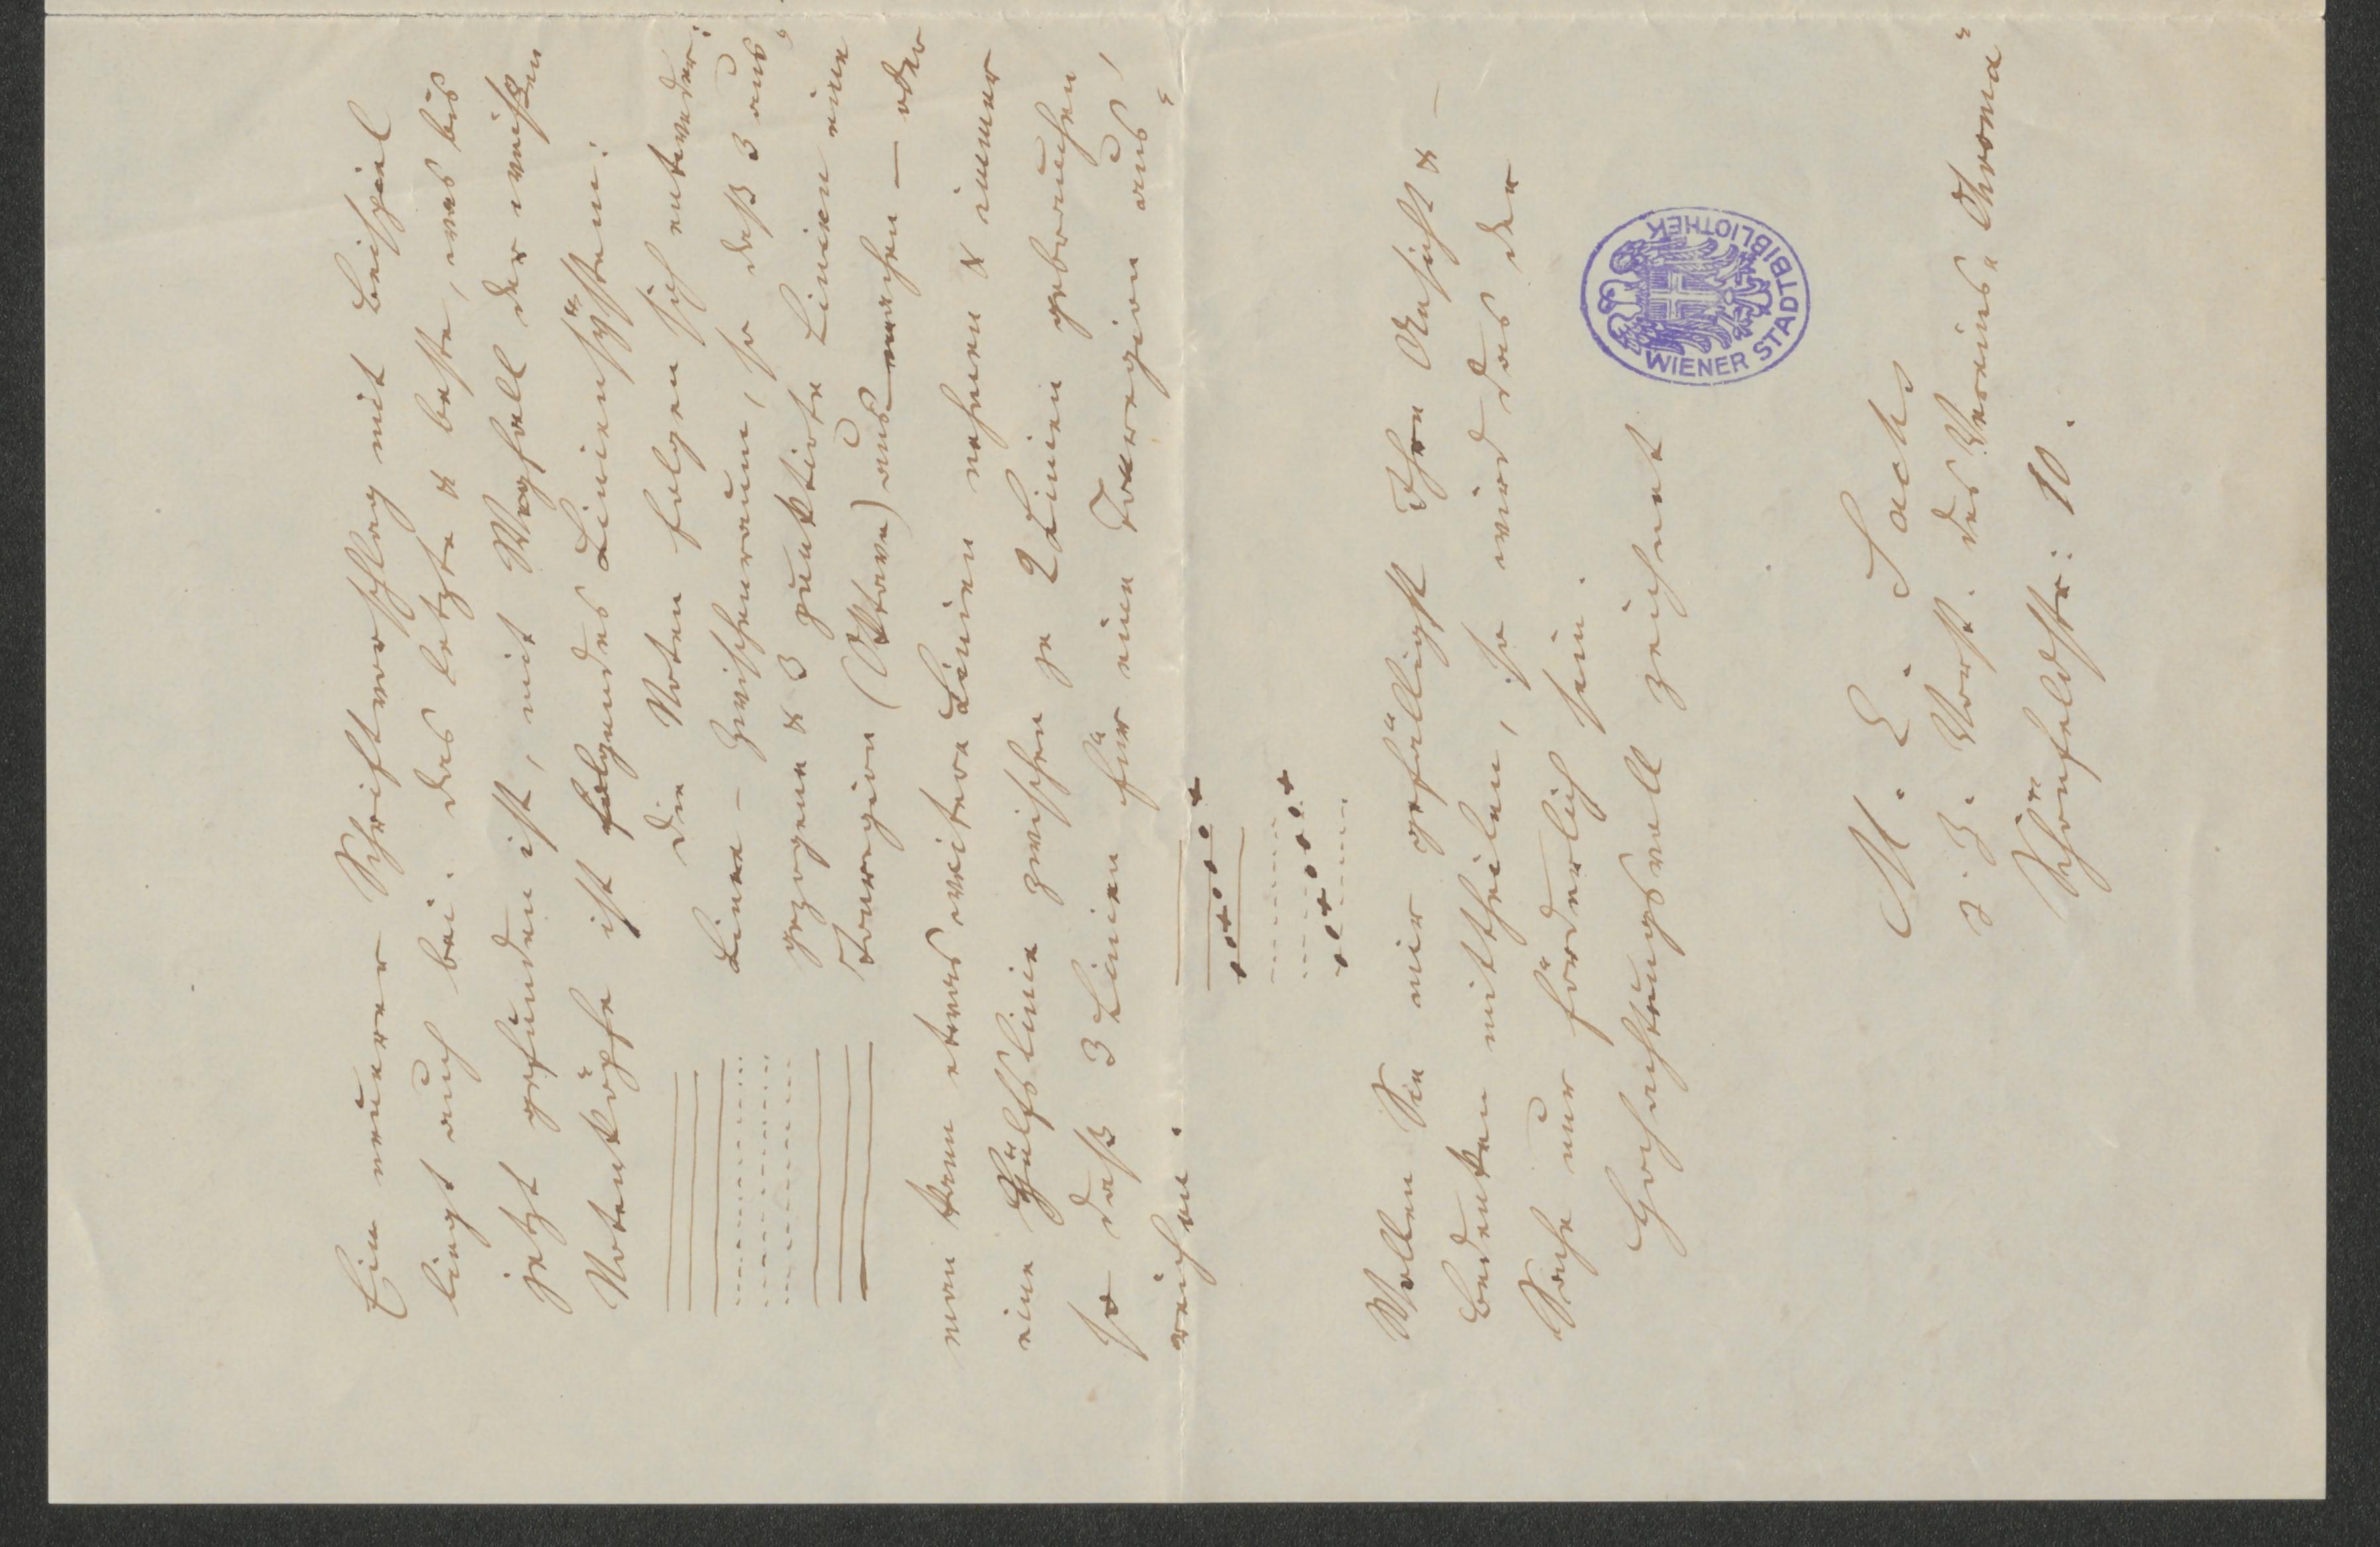 Ein neuer Schriftvorschlag mit Beispiel
liegt auch bei. Das letzte & beste, was bis
jetzt gefunden ist, mit Wegfall der weißen
Notenköpfe ist folgendes Liniensÿstem:
Die Noten folgen sich entweder:
Linie – Zwischenraum, so daß 3 aus=
gezogene & 3 punktirte Linien eine
Tonregion (Oktave) ausmachen – oder
man kann etwas weitere Linien nehmen & immer
eine Hülfslinie zwischen je 2 Linien gebrauchen
so daß 3 Linien für eine Tonregion aus=
reichen.
Wollen Sie mir gefälligst Ihre Ansicht &
Bedenken mittheilen, so wird das der
Sache nur förderlich sein.
Hochachtungsvoll zeichnet
M. E. Sachs
z. Z. Vorst. des Vereins „Chroma"
Schönfeldstr: 10.
WIENER STADTBIBLIOTHEK